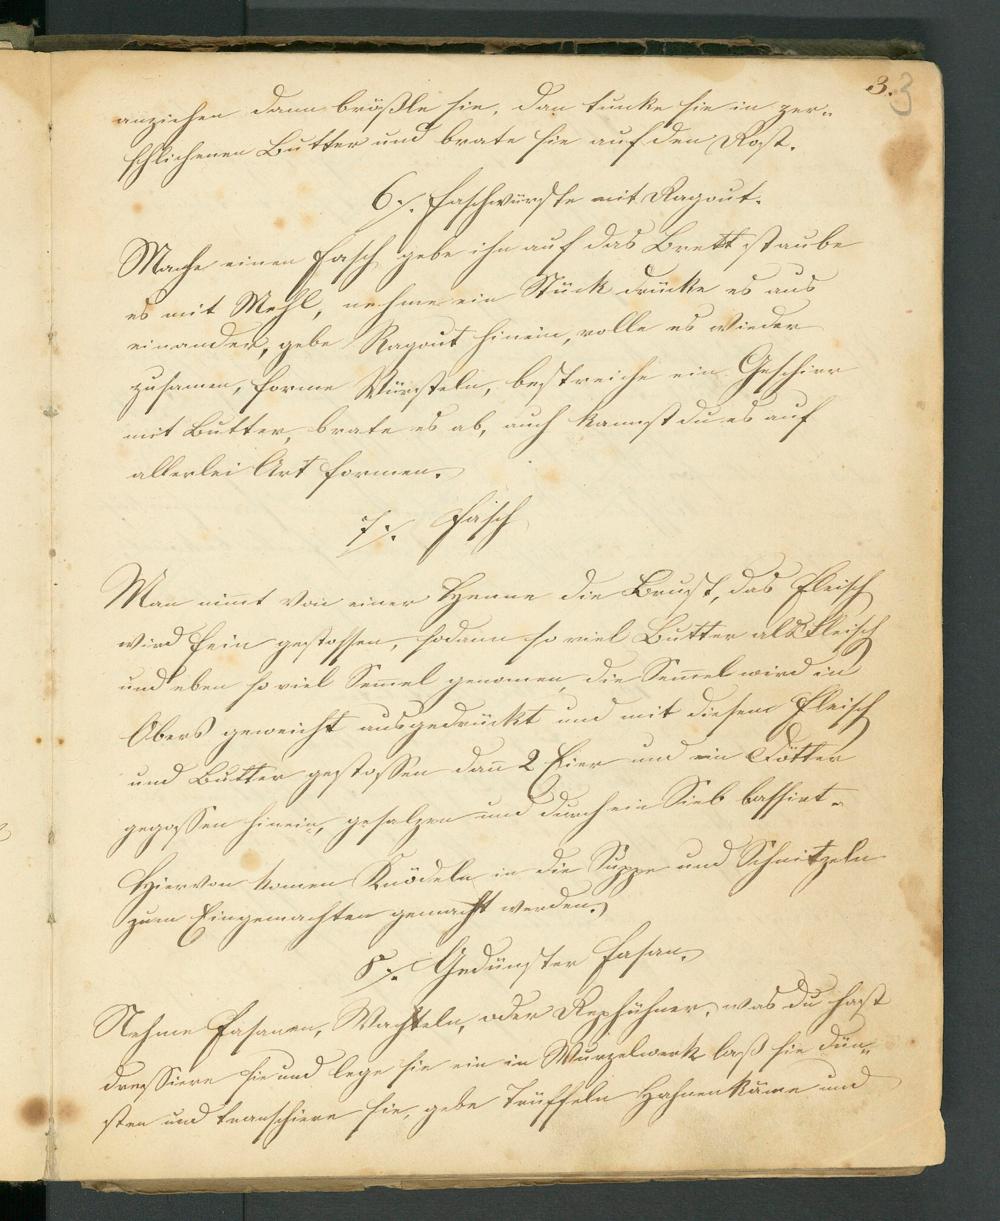 3. 3
anziehen dann bräßle sie, dan tunke sie in zer-
schlichenen Butter und brate sie auf den Rost.
6./. Faschwürste mit Ragout.
Mache einen Fasch gebe ihn auf das Brett staube
es mit Mehl, nehme ein Stück drücke es aus
einander, gebe Ragout hinein, rolle es wieder
zusamen, forme Würsteln, bestreiche ein Geschirr
mit Butter, brate es ab, auch kannst du es auf
allerlei Art formen.
7./. Fasch
Man nimt von einer Henne die Brust, das Fleisch
wird fein gestossen, sodann so viel Butter als Fleisch
und eben so viel Semel genomen, die Semel wird in
Obers geweicht ausgedrückt und mit diesem Fleisch
und Butter gestossen dan 2 Eier und ein Dötter
gegossen hinein, gesalzen und durch ein Sieb bassirt.
Hiervon komen Knödeln in die Suppe und Schnitzeln
zum Eingemachten gemacht werden.
8./. Gedünster Fasan.
Nehme Fasanen, Wachteln, oder Rephühner, was du hast
dressiere sie und lege sie ein in Wurzelwerk laß sie dün-
sten und transchiere sie, gebe Trüffeln Hahnenkäme und